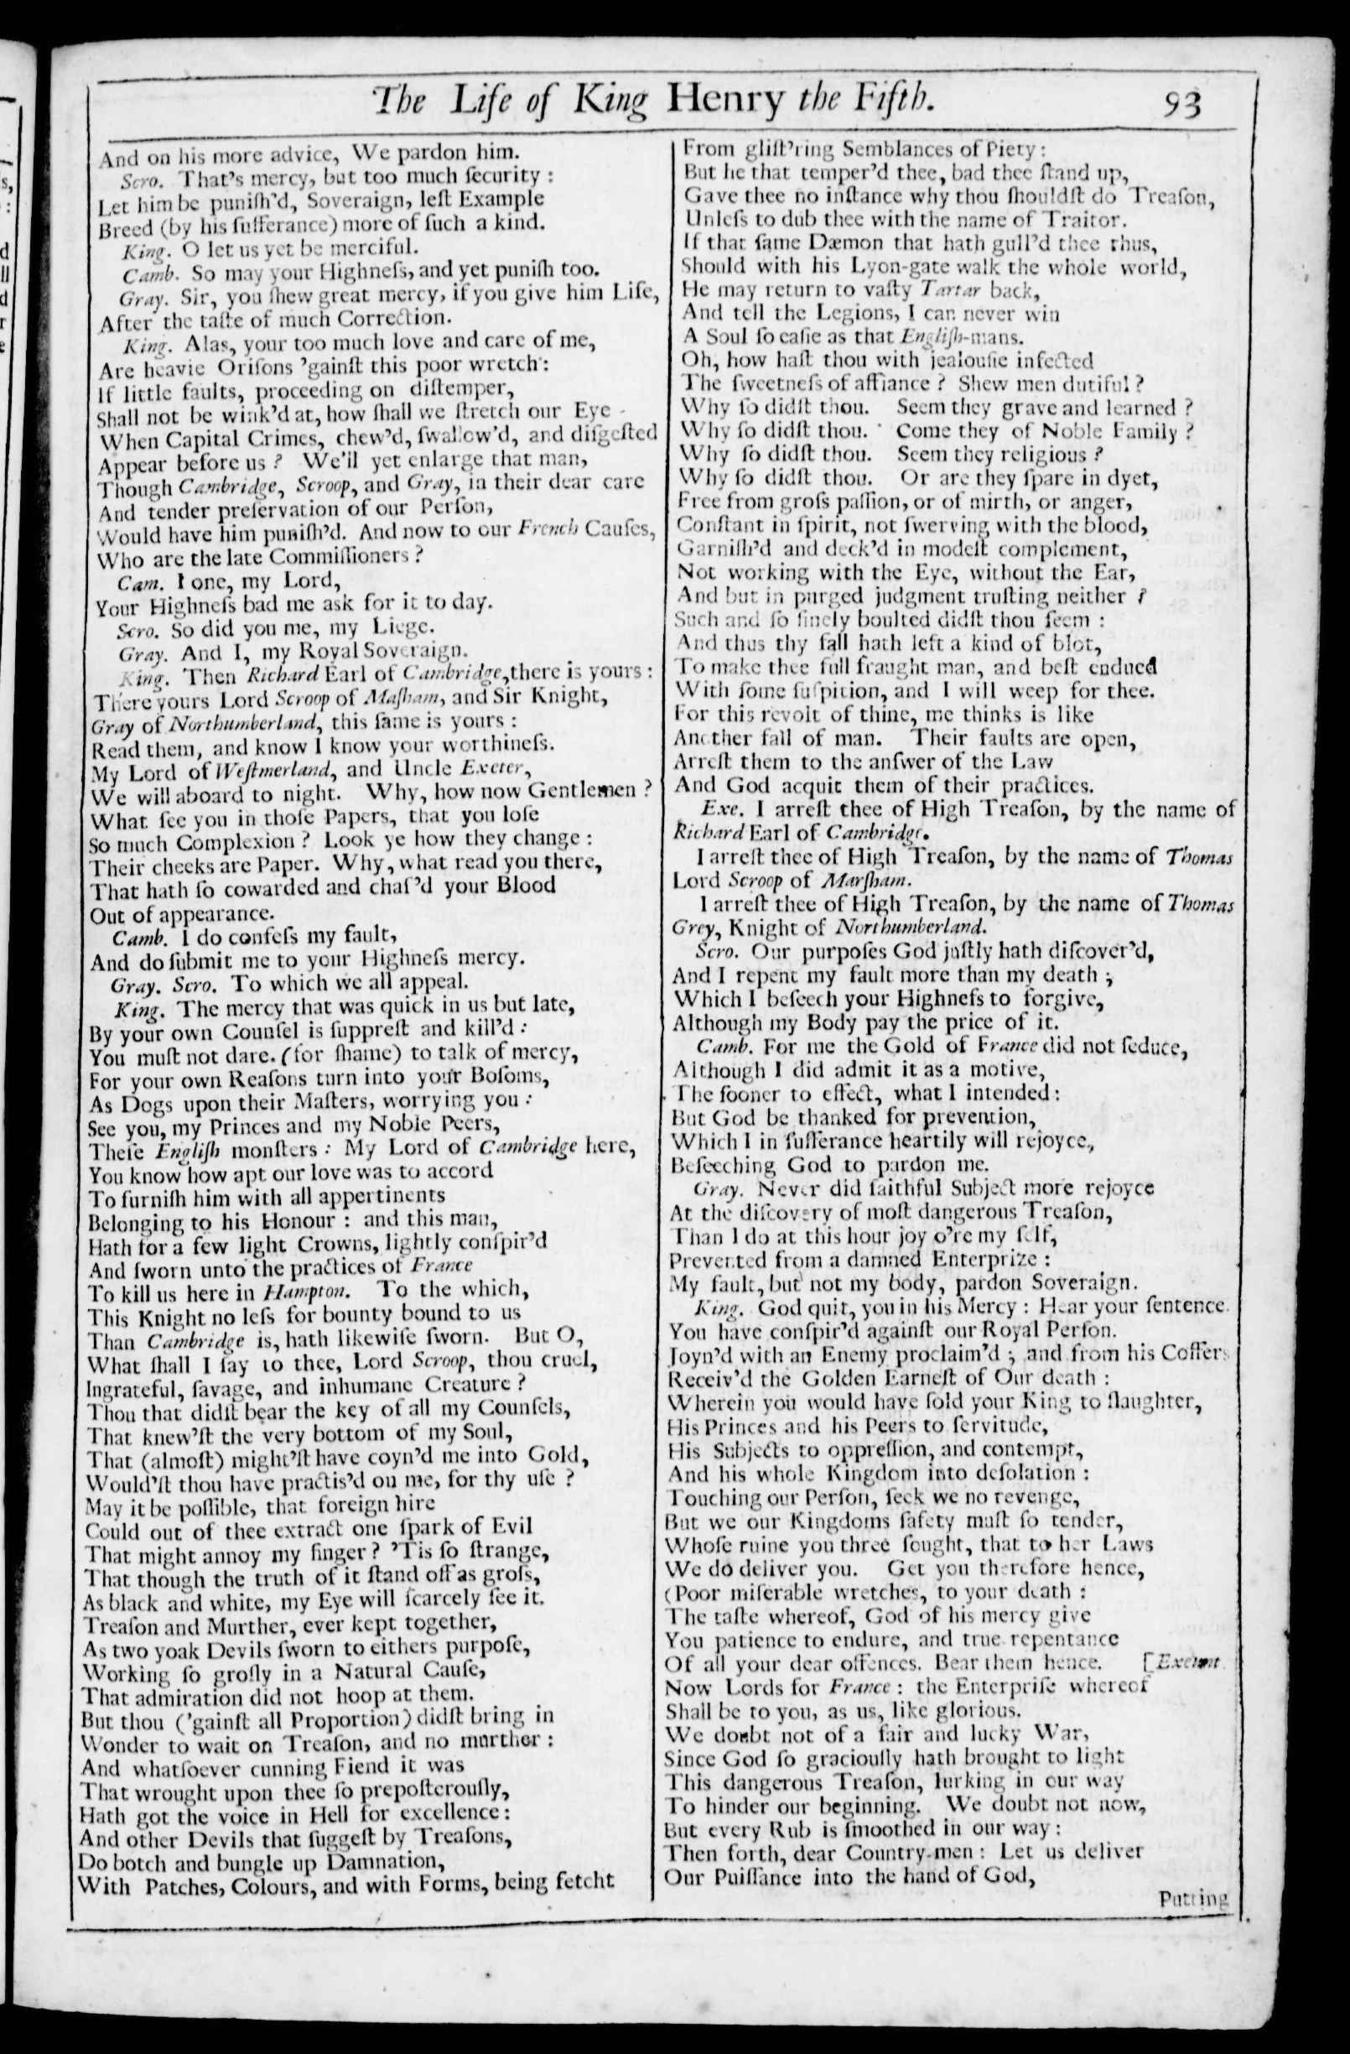 The Life of King Henry the Fifth. 93
And on his more advice, We pardon him.
Scro. That's mercy, but too much ſecurity :
Let him be puniſh'd, Soveraign, leſt Example
Breed (by his ſufferance) more of ſuch a kind.
King. O let us yet be merciful.
Camb. So may your Highneſs, and yet puniſh too.
Gray. Sir, you ſhew great mercy, if you give him Life,
After the taſte of much Correction.
King. Alas, your too much love and care of me,
Are heavie Oriſons 'gainſt this poor wretch :
If little faults, proceeding on diſtemper,
Shall not be wink'd at, how ſhall we ſtretch our Eye
When Capital Crimes, chew'd, ſwallow'd, and diſgeſted
Appear before us ? We'il yet enlarge that man,
Though Cambridge, Scroop, and Gray, in their dear care
And tender preſervation of our Perſon,
Would have him puniſh'd. And now to our French Cauſes,
Who are the late Commiſſioners ?
Cam. I one, my Lord,
Your Highneſs bad me ask for it to day.
Scro. So did you me, my Liege.
Gray. And I, my Royal Soveraign.
King. Then Richard Earl of Cambridge, there is yours :
There yours Lord Scroop of Maſham, and Sir Knight,
Gray of Northumberland, this ſame is yours :
Read them, and know I know your worthineſs.
My Lord of Weſtmerland, and Uncle Exeter,
We will aboard to night. Why, how now Gentlemen ?
What ſee you in thoſe Papers, that you loſe
So much Complexion ? Look ye how they change :
Their cheeks are Paper. Why, what read you there,
That hath ſo cowarded and chaſ'd your Blood
Out of appearance.
Camb. I do confeſs my fault,
And do ſubmit me to your Highneſs mercy.
Gray. Scro. To which we all appeal.
King. The mercy that was quick in us but late,
By your own Counſel is ſuppreſt and kill'd :
You muſt not dare. (for ſhame) to talk of mercy,
For your own Reaſons turn into your Boſoms,
As Dogs upon their Maſters, worrying you :
See you, my Princes and my Noble Peers,
Theſe Engliſh monſters : My Lord of Cambridge here,
You know how apt our love was to accord
To furniſh him with all appertinents
Belonging to his Honour : and this man,
Hath for a few light Crowns, lightly conſpir'd
And ſworn unto the practices of France
To kill us here in Hampton. To the which,
This Knight no leſs for bounty bound to us
Than Cambridge is, hath likewiſe ſworn. But O,
What ſhall I ſay to thee, Lord Scroop, thou cruel,
Ingrateful, ſavage, and inhumane Creature ?
Thou that didſt bear the key of all my Counſels,
That knew'ſt the very bottom of my Soul,
That (almoſt) might'ſt have coyn'd me into Gold,
Would'ſt thou have practis'd on me, for thy uſe ?
May it be poſſible, that foreign hire
Could out of thee extract one ſpark of Evil
That might annoy my finger ? 'Tis ſo ſtrange,
That though the truth of it ſtand off as groſs,
As black and white, my Eye will ſcarcely ſee it.
Treaſon and Murther, ever kept together,
As two yoak Devils ſworn to eithers purpoſe,
Working ſo groſly in a Natural Cauſe,
That admiration did not hoop at them.
But thou ('gainſt all Proportion) didſt bring in
Wonder to wait on Treaſon, and no murther :
And whatſoever cunning Fiend it was
That wrought upon thee ſo prepoſterouſly,
Hath got the voice in Hell for excellence :
And other Devils that ſuggeſt by Treaſons,
Do botch and bungle up Damnation,
With Patches, Colours, and with Forms, being fetcht
From gliſt'ring Semblances of Piety :
But he that temper'd thee, bad thee ſtand up,
Gave thee no inſtance why thou ſhouldſt do Treaſon,
Unleſs to dub thee with the name of Traitor.
If that ſame Dæmon that hath gull'd thee thus,
Should with his Lyon-gate walk the whole world,
He may return to vaſty Tartar back,
And tell the Legions, I can never win
A Soul ſo eaſie as that Engliſh-mans.
Oh, how haſt thou with jealouſie infected
The ſweetneſs of affiance ? Shew men dutiful ?
Why ſo didſt thou. Seem they grave and learned ?
Why ſo didſt thou. Come they of Noble Family ?
Why ſo didſt thou. Seem they religious ?
Why ſo didſt thou. Or are they ſpare in dyet,
Free from groſs paſſion, or of mirth, or anger,
Conſtant in ſpirit, not ſwerving with the blood,
Garniſh'd and deck'd in modeſt complement,
Not working with the Eye, without the Ear,
And but in purged judgment truſting neither ?
Such and ſo finely boulted didſt thou ſeem :
And thus thy fall hath left a kind of blot,
To make thee full fraught man, and beſt endued
With ſome ſuſpition, and I will weep for thee.
For this revolt of thine, me thinks is like
Another fall of man. Their faults are open,
Arreſt them to the anſwer of the Law
And God acquit them of their practices.
Exe. I arreſt thee of High Treaſon, by the name of
Richard Earl of Cambridge.
I arreſt thee of High Treaſon, by the name of Thomas
Lord Scroop of Marſham.
I arreſt thee of High Treaſon, by the name of Thomas
Grey, Knight of Northumberland.
Scro. Our purpoſes God juſtly hath diſcover'd,
And I repent my fault more than my death ;
Which I beſeech your Highneſs to forgive,
Although my Body pay the price of it.
Camb. For me the Gold of France did not ſeduce,
Although I did admit it as a motive,
The ſooner to effect, what I intended :
But God be thanked for prevention,
Which I in ſufferance heartily will rejoyce,
Beſeeching God to pardon me.
Gray. Never did faithful Subject more rejoyce
At the diſcovery of moſt dangerous Treaſon,
Than I do at this hour joy o're my ſelf,
Prevented from a damned Enterprize :
My fault, but not my body, pardon Soveraign.
King. God quit, you in his Mercy : Hear your ſentence.
You have conſpir'd againſt our Royal Perſon.
Joyn'd with an Enemy proclaim'd ; and from his Coffers
Receiv'd the Golden Earneſt of Our death :
Wherein you would have ſold your King to ſlaughter,
His Princes and his Peers to ſervitude,
His Subjects to oppreſſion, and contempt,
And his whole Kingdom into deſolation :
Touching our Perſon, ſeek we no revenge,
But we our Kingdoms ſafety muſt ſo tender,
Whoſe ruine you three ſought, that to her Laws
We do deliver you. Get you therefore hence,
(Poor miſerable wretches, to your death :
The taſte whereof, God of his mercy give
You patience to endure, and true repentance
Of all your dear offences. Bear them hence. [Exeunt.
Now Lords for France : the Enterpriſe whereof
Shall be to you, as us, like glorious.
We doubt not of a fair and lucky War,
Since God ſo graciouſly hath brought to light
This dangerous Treaſon, lurking in our way
To hinder our beginning. We doubt not now,
But every Rub is ſmoothed in our way :
Then forth, dear Country-men : Let us deliver
Our Puiſſance into the hand of God,
Putting